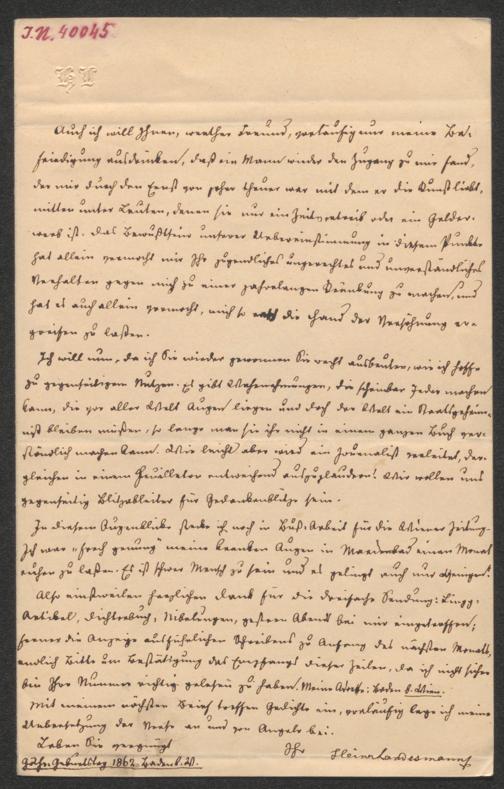 I.N. 40045
HL
Auch ich will Ihnen, werther Freund, vorläufig nur meine Be-
friedigung ausdrücken, daß ein Mann wieder den Zugang zu mir fand,
der mir durch den Ernst von jeher theuer war mit dem er die Kunst liebt,
mitten unter Leuten, denen sie nur ein Zeitvertreib oder ein Gelder-
werb ist. Das Bewußtsein unserer Uebereinstimmung in diesem Punkte
hat allein vermocht mir Ihr jugendliches ungerechtes und unverständliches
Verhalten gegen mich zu einer jahrelangen Kränkung zu machen, und
hat es auch allein vermocht, mich so die Hand der Versöhnung er-
greifen zu lassen.
Ich will nun, da ich Sie wieder gewonnen Sie recht ausbeuten, wie ich hoffe
zu gegenseitigem Nutzen. Es gibt Wahrnehmungen, die scheinbar Jeder machen
kann, die vor aller Welt Augen liegen und doch der Welt ein Staatsgeheim-
niß bleiben müssen, so lange man sie ihr nicht in einem ganzen Buch ver-
ständlich machen kann. Wie leicht aber wird ein Journalist verleitet, der-
gleichen in einem Feuilleton auszuplaudern! Wir wollen uns
gegenseitig Blitzableiter für Gedankenblitze sein.
In diesem Augenblicke stecke ich noch in Buß-Arbeit für die Wiener Zeitung.
Ich war „frech genung" meine kranken Augen in Marienbad einen Monat
ruhen zu lassen. Es ist schwer Mensch zu sein und es gelingt auch nur Wenigen.
Also einstweilen herzlichen Dank für die dreifache Sendung: Lingg-
Artikel, Dichterbuch, Nibelungen, gestern Abend bei mir eingetroffen;
ferner die Anzeige ausführlichen Schreibens zu Anfang des nächsten Monats,
endlich Bitte um Bestätigung des Empfangs dieser Zeilen, da ich nicht sicher
bin Ihre Nummer richtig gelesen zu haben. Meine Adresse: Baden b. Wien.
Mit meinem nächsten Brief treffen Gedichte ein, vorläufig lege ich meine
Uebersetzung der Verse an und von Angelo bei.
Leben Sie vergnügt
Ihr Heinr. Landesmann
Göthe's Geburtstag 1862. Baden b. W.